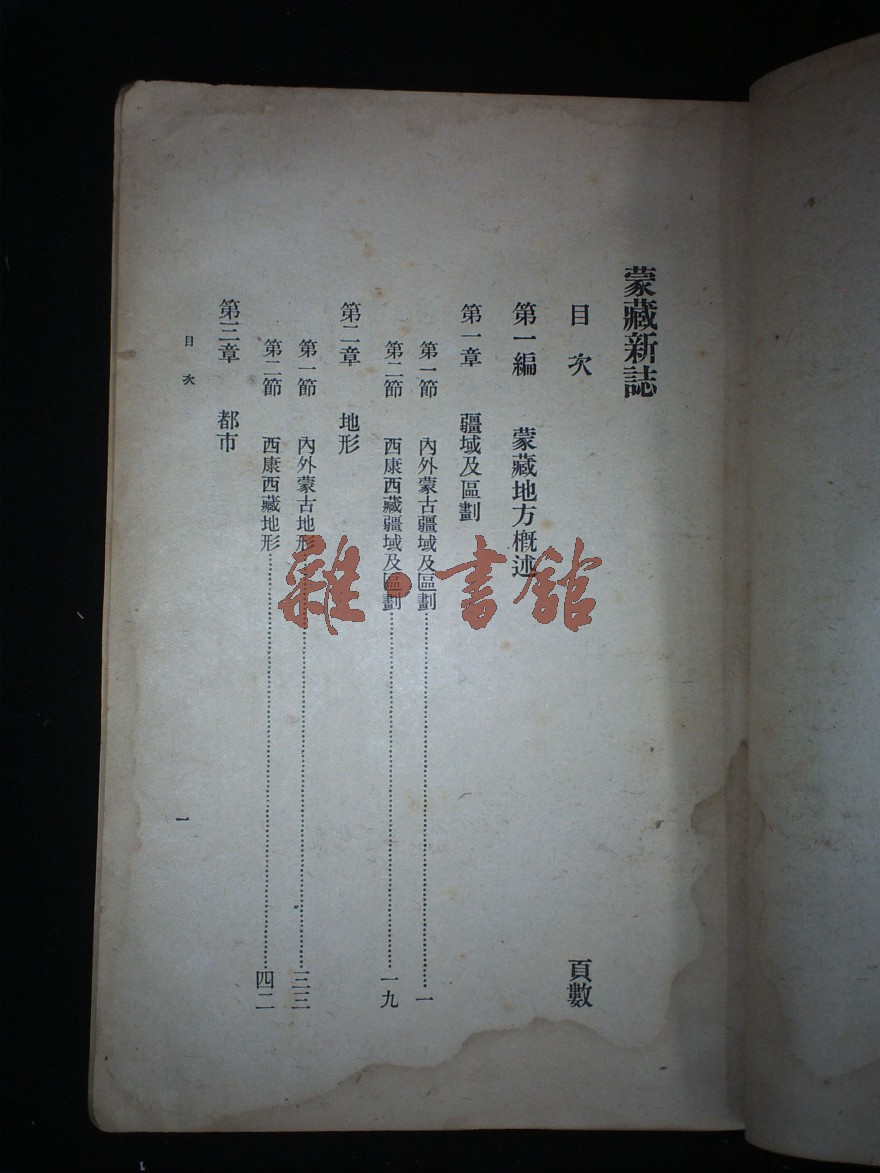 蒙藏新誌
目次 頁數
第一編 蒙藏地方概述
第一章 疆域及區劃
第一節 內外蒙古疆域及區劃 一
第二節 西康西藏疆域及區劃 一九
第二章 地形
第一節 內外蒙古地形 三三
第二節 西康西藏地形 四二
第三章 都市
目次 一
雜·書館